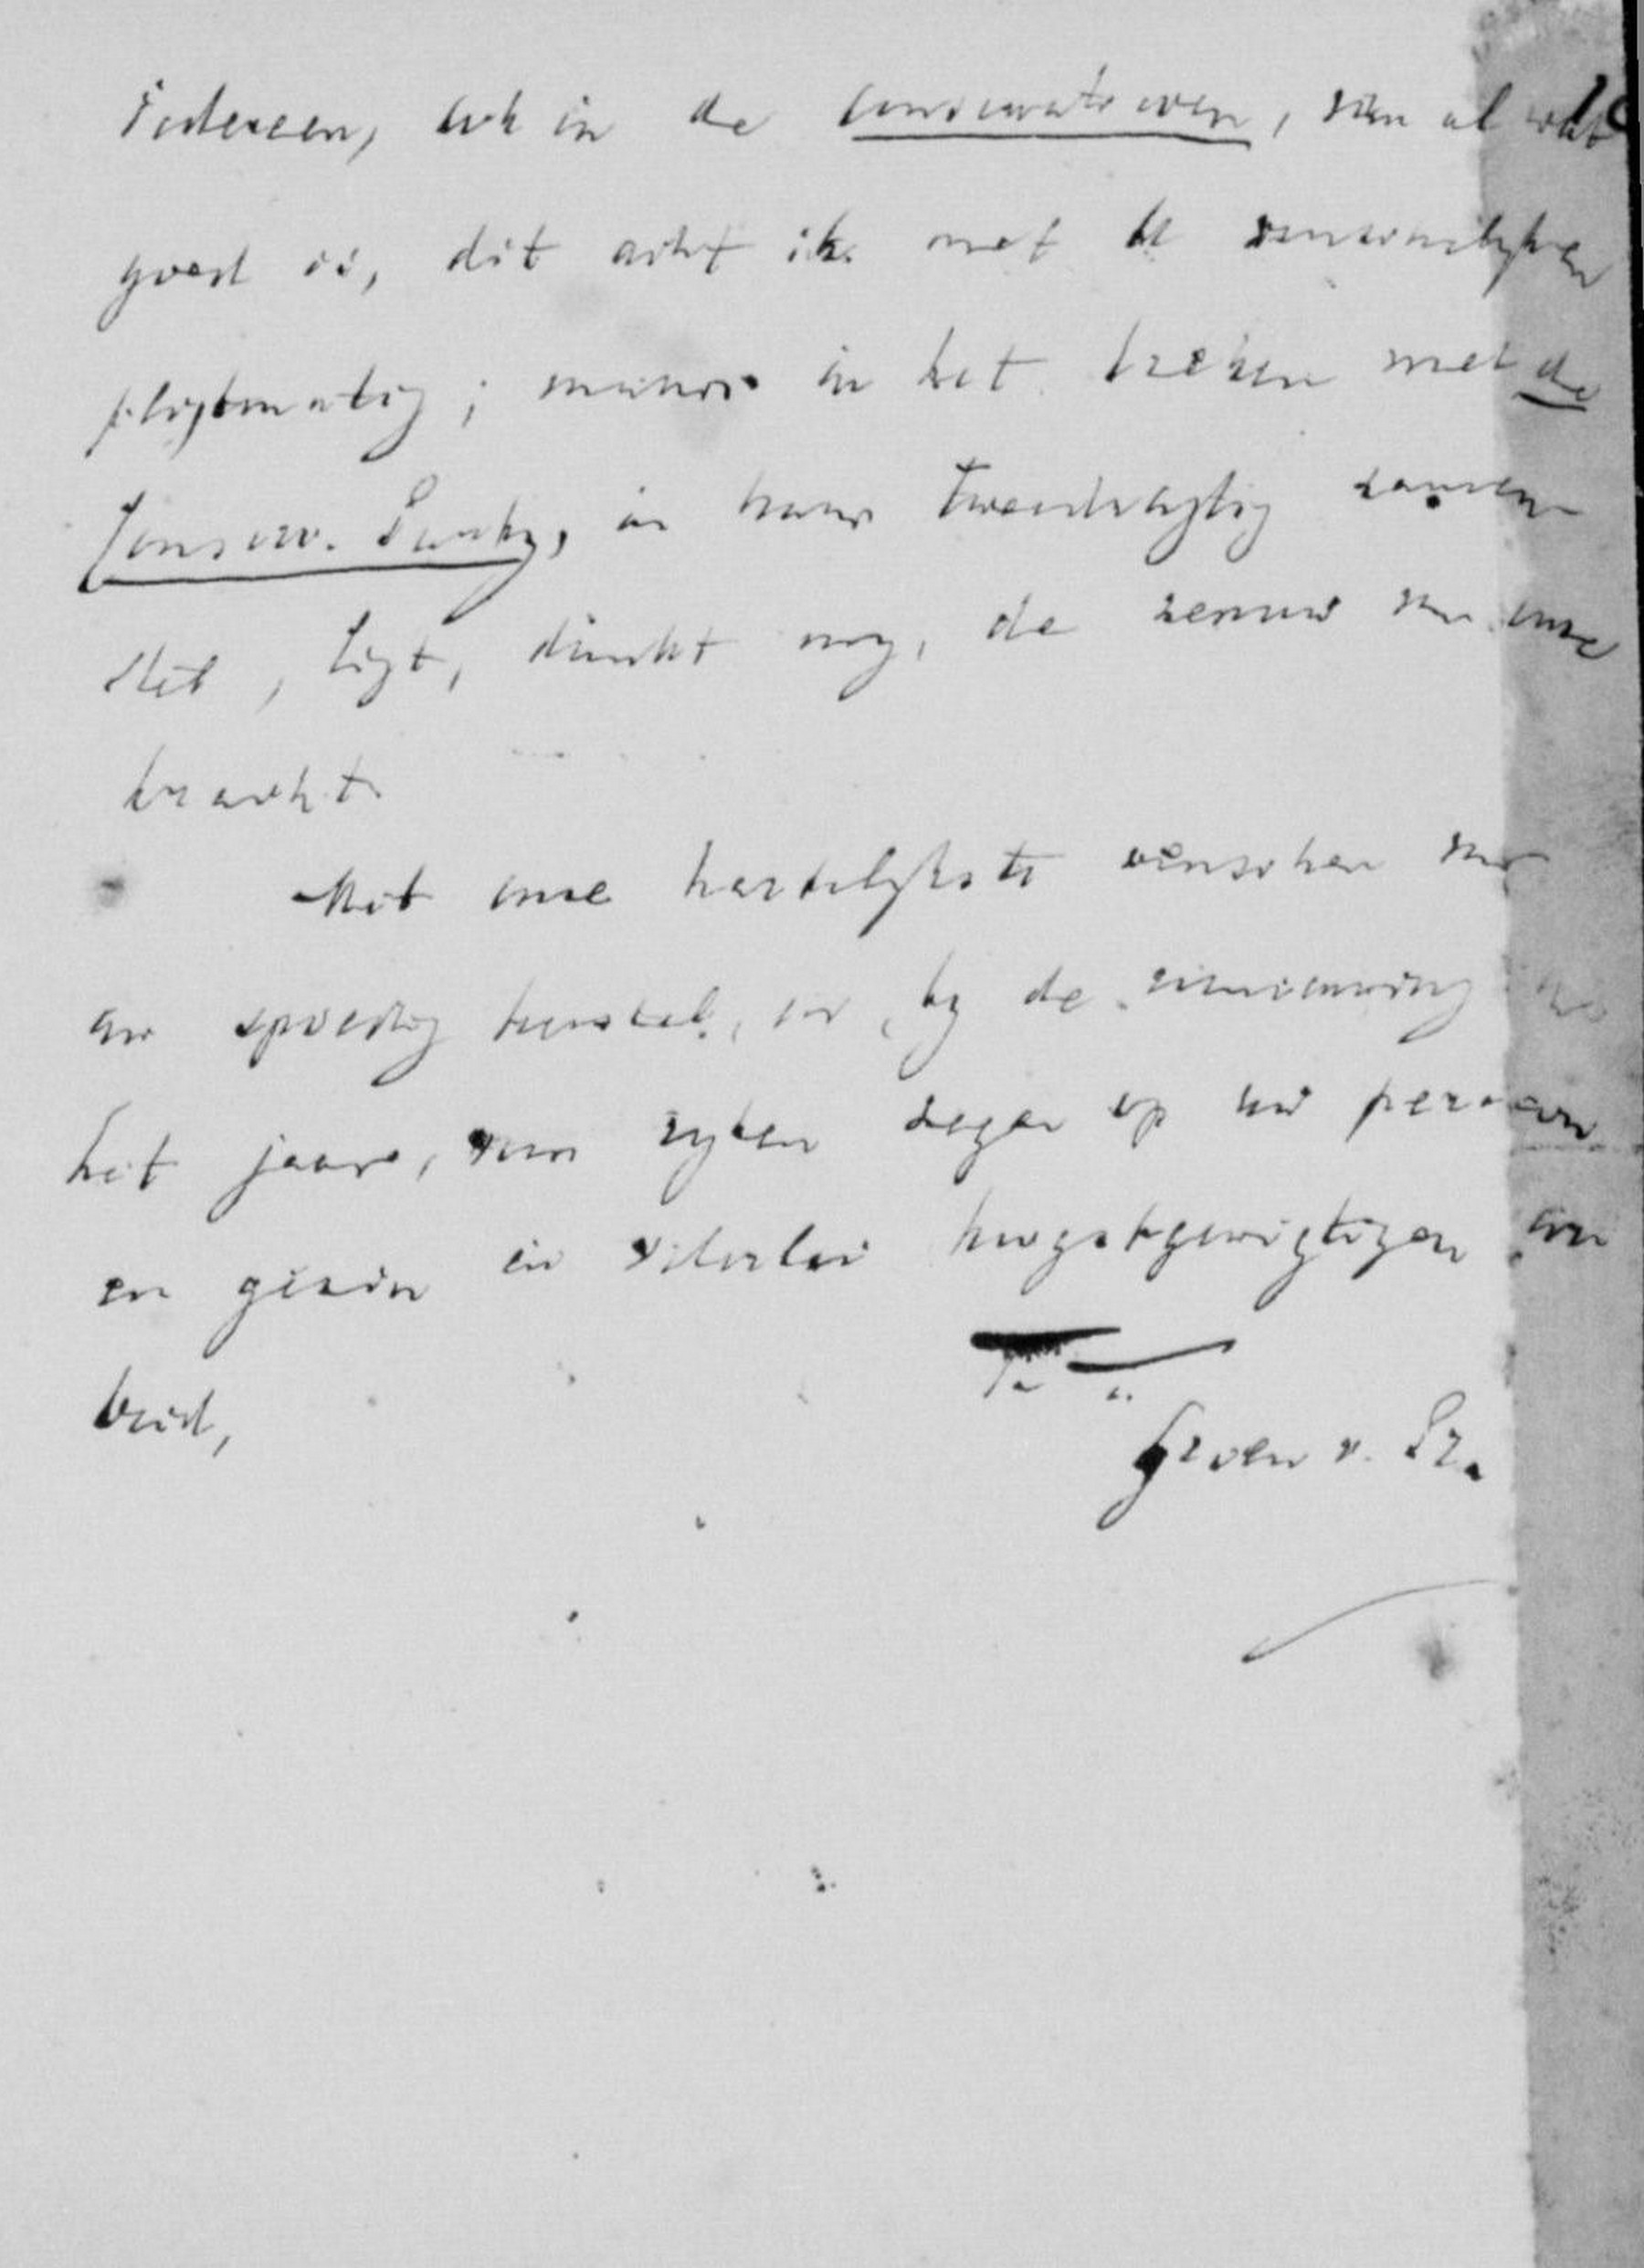 iedereen, ook in de conservatieven, van al wat
goed is, dit acht ik met U
pligtmatig; maar in het breken met de
Conserv. Party, in haar tweeslagtig zamen
stel, ligt, dunkt my, de zenuw van onze
kracht.
Met onze hartelykste wenschen voor
uw spoedig herstel, en, by de vernieuwing van
het jaar, van ryken zegen op uw persoon
en gezin en velerlei hoogstgewigtigen ar
beid,
T. a.
Groen v. Pr.